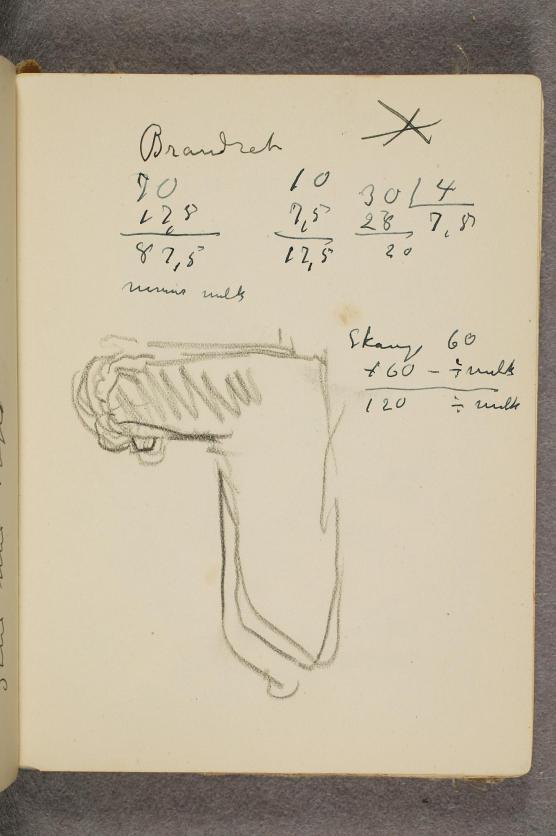 Brandret
70
17,5
87,5
minus melk
10
7,5
17,5
30 | 4
28 7,5
20
Skaug 60
+60 - ÷ melk
120 ÷ melk